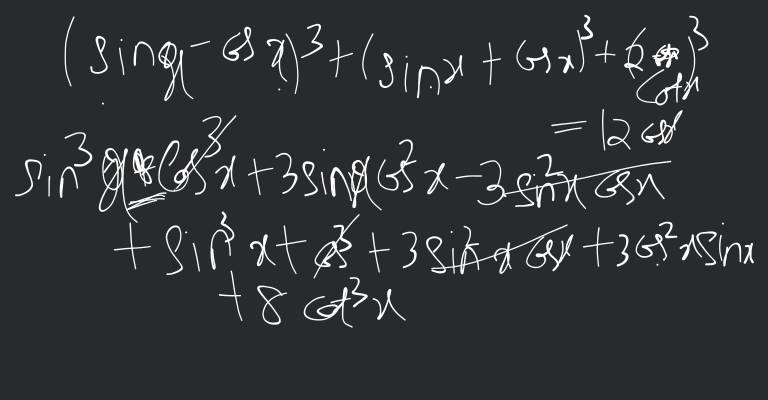 (sinx - cosx)³ + (sinx + cosx)³ + (2 cotx)³
= 12 cosx
sin³x - cos³x + 3sinx cos²x - 3sin²x cosx
+ sin³x + cos³ + 3sin²x cosx + 3cos²x sinx
+ 8 cot³x